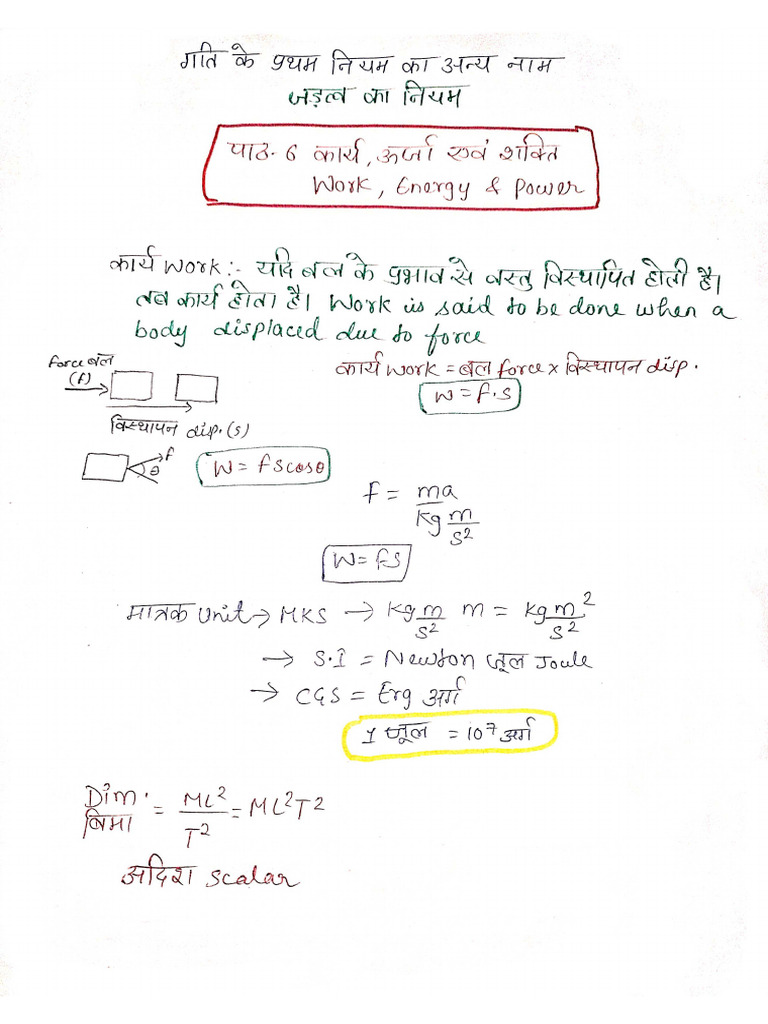 गति के प्रथम नियम का अन्य नाम
जड़त्व का नियम
पाठ-6 कार्य, ऊर्जा एवं शक्ति
Work, Energy & Power
कार्य Work :- यदि बल के प्रभाव से वस्तु विस्थापित होती है।
तब कार्य होता है। Work is said to be done when a
body displaced due to force
force बल
(f)
कार्य Work = बल force × विस्थापन disp.
W = f.s
विस्थापन disp.(s)
f
θ
W = fscosθ
f = ma
kg m/s²
W = f.s
मात्रक Unit → MKS → kg m/s² m = kg m²/s²
→ S.I = Newton जूल Joule
→ CGS = Erg अर्ग
1 जूल = 10⁷ अर्ग
Dim. विमा = ML²/T² = ML²T²
अदिश scalar